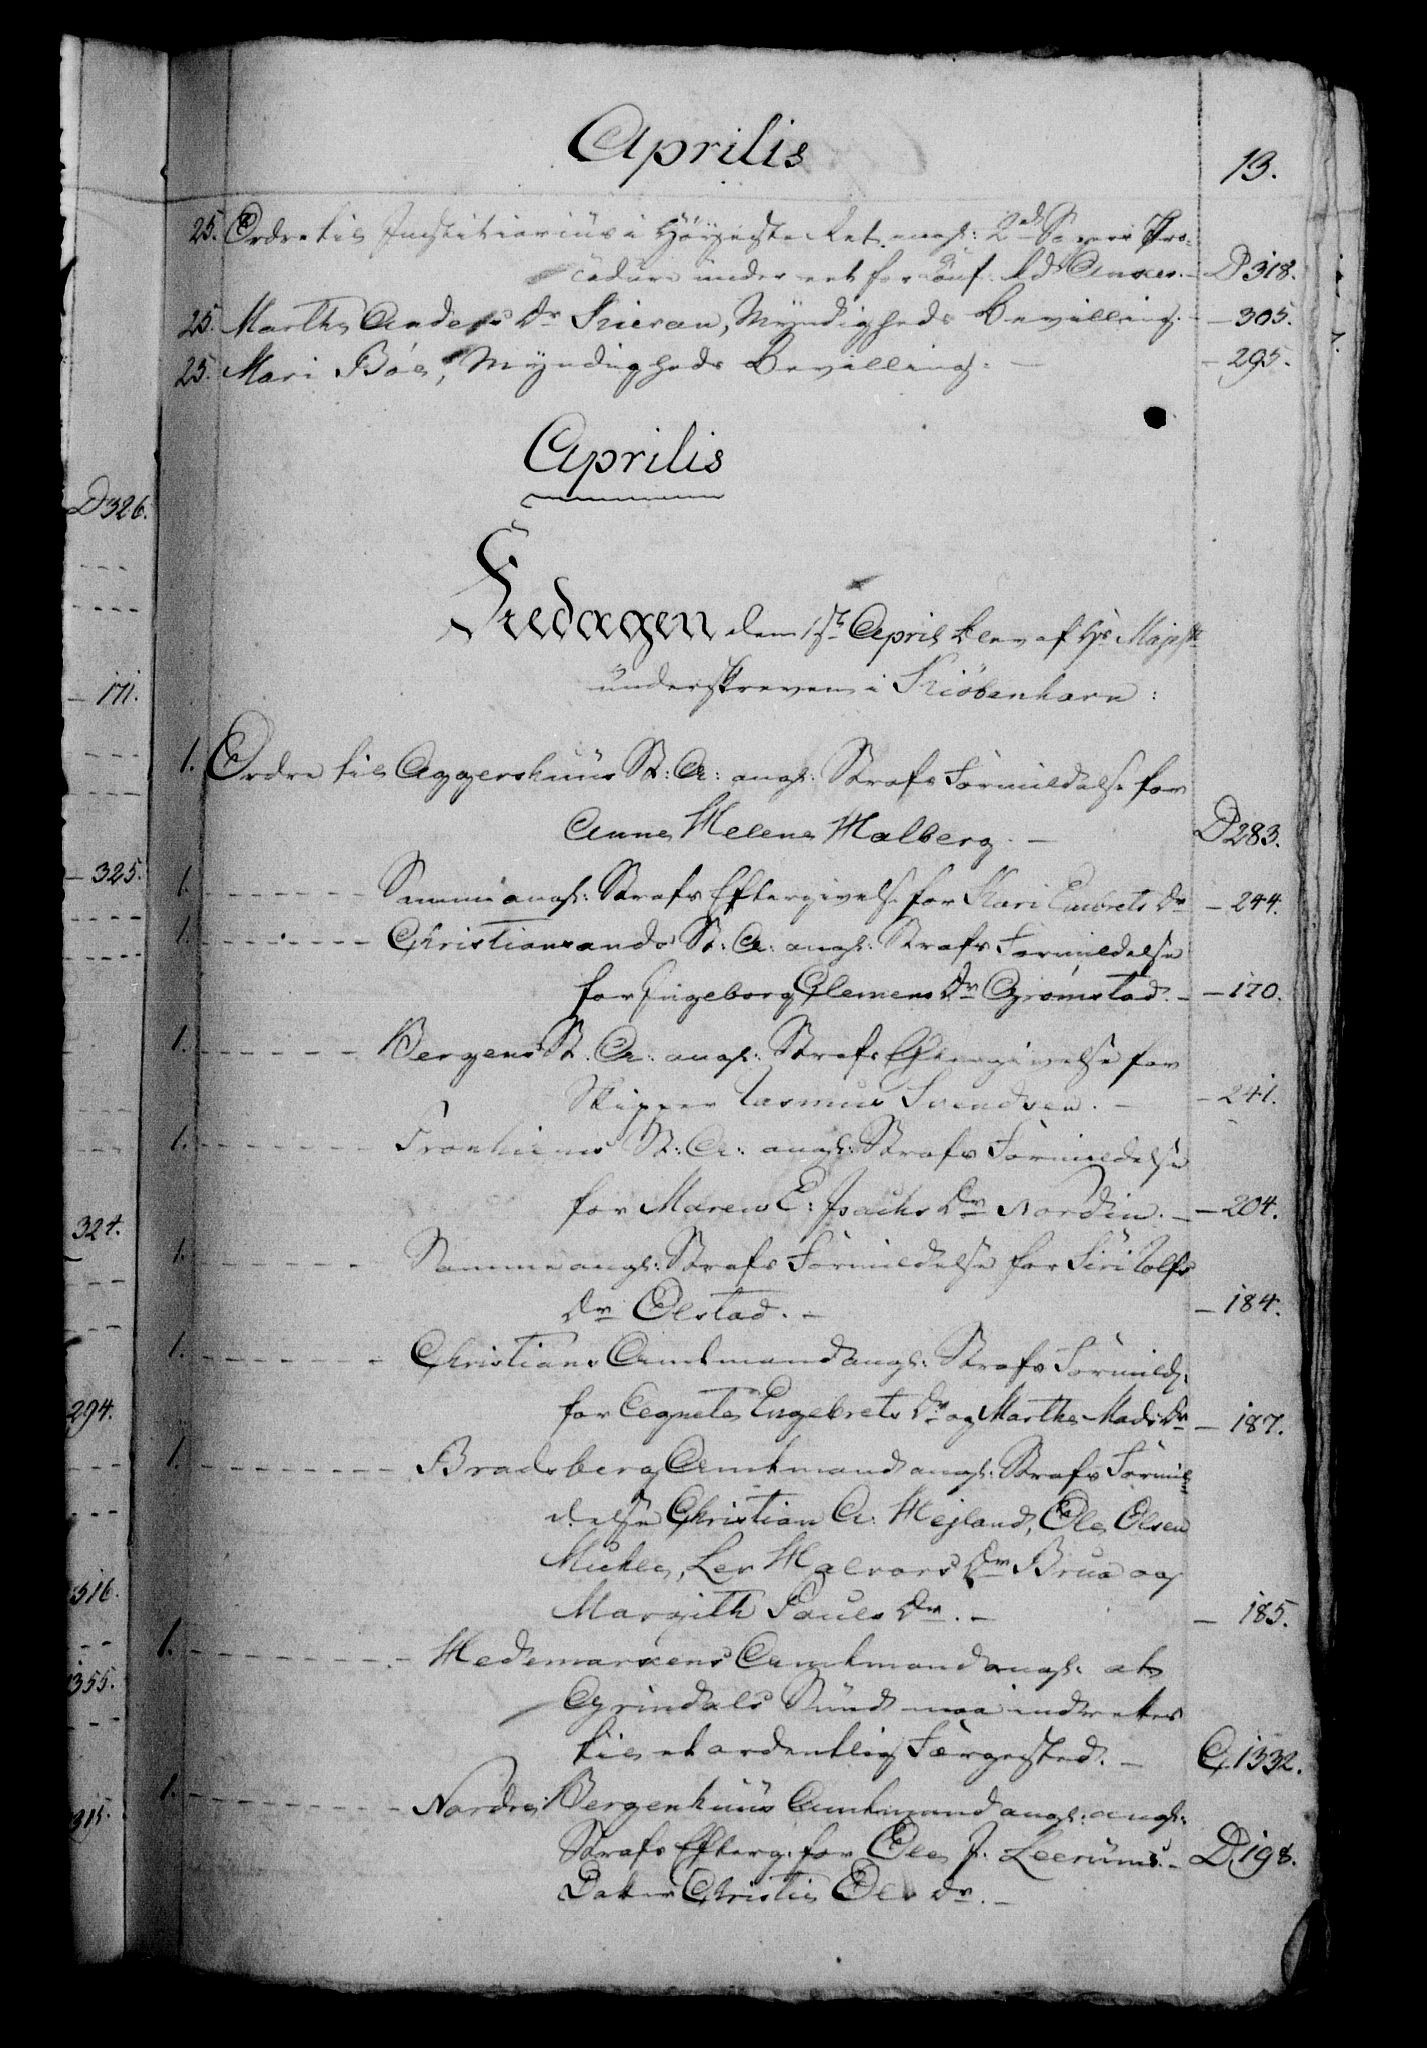 Aprilis
13.
25. Ordre til Justitiarius i Høyeste Ret angl: 2de Sager Pro-
cedure under et for Conf. Rd Anker. - D 318.
25. Marthe Anders Dr Skieran, Myndigheds Bevilling. - 305.
25. Mari Böe, Myndigheds Bevilling. - 295.
Aprilis
Fredagen den 1ste April blev af Hs Majestt
underskreven i Kiöbenhavn:
1. Ordre til Aggershuus St: A: angl: Strafs Formildelse for
Anne Helene Halberg. - D 283.
1. - Samme angl: Strafs Eftergivelse for Kari Embrets Dr - 244.
1. - Christiansands St: A: angl: Strafs Formildelse
for Ingeborg Clemens Dr Grömstad. - 170.
1. - Bergens St. A: angl: Strafs Eftergivelse for
Skipper Rasmus Svendsen. - 241.
1. - Tronhiems St: A: angl: Strafs Formildelse
for Maren E: Isachs Dr Nordin. - 204.
1. - Samme angl: Strafs Formildelse for Siri Rolfs
Dr Olstad. - 184.
1. - Christians Amtmand angl: Strafs Formild:
for Agnete Engebrets Dr og Marthe Mads Dr - 187.
1. - Bradsberg Amtmand angl: Strafs Formil=
delse Christian A. Hejland, Ole Olsen
Mickle, Lev Halvors Dr Brua og
Margith Pauls Dr. - 185.
1. - Hedemarkens Amtmand angl: at
Grindals Sund maa indrettes
til et ordentlig Færgested. - C. 1332.
1. - Nordre Bergenhuus Amtmand angl: angl:
Strafs Efterg: for Ole J. Leerums - D 198.
Datter Christi Ols Dr. -
D 326.
- 171.
- 325.
324.
294.
516.
355.
315.